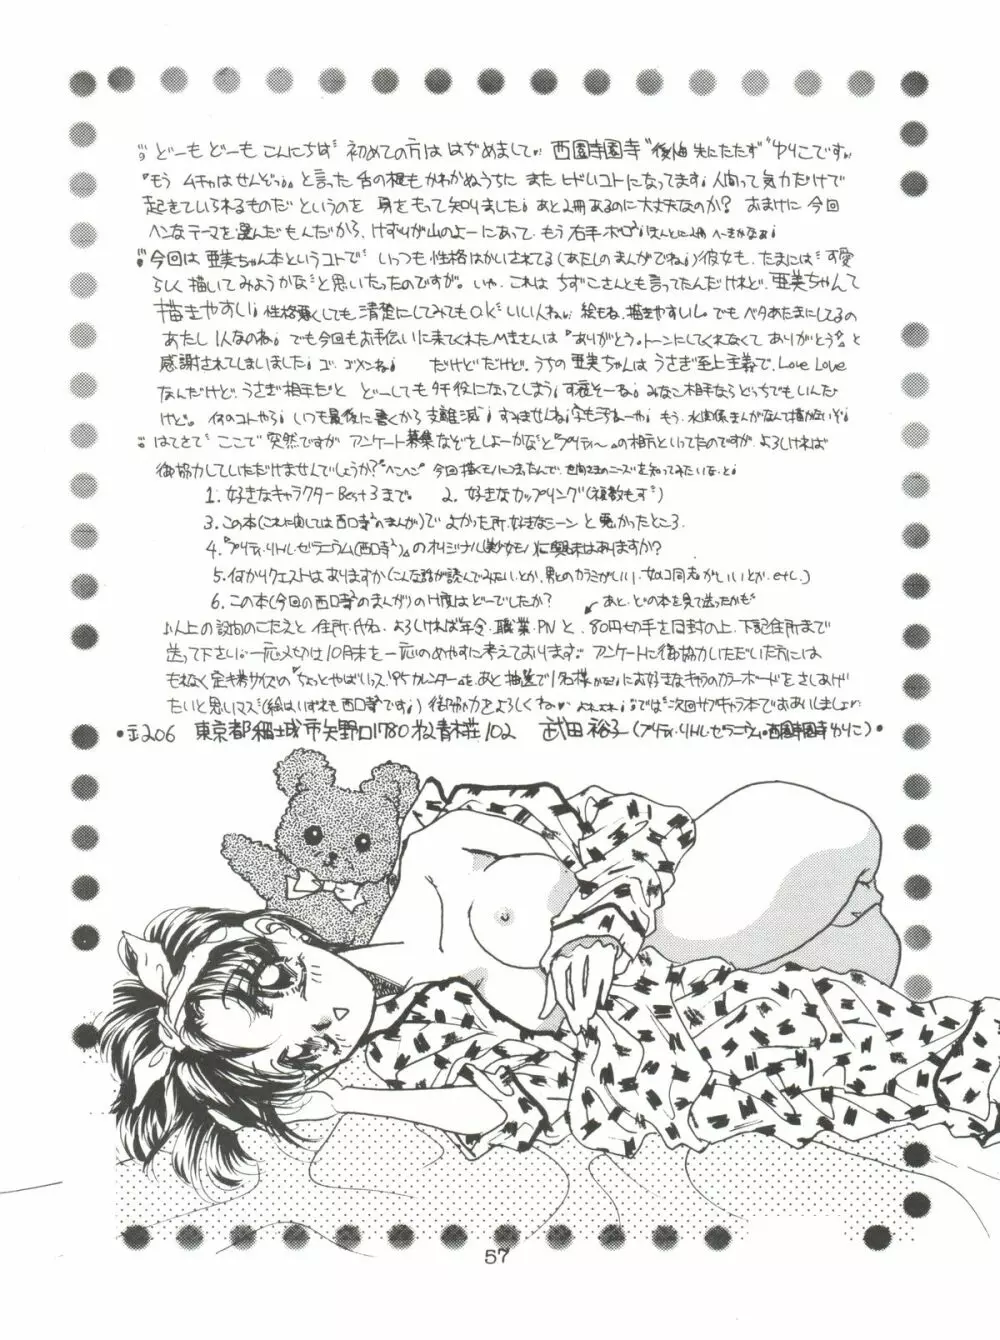 どーもどーもこんにちは 初めての方は はじめまして 西園寺園寺"後悔先にたたず"ゆりこです
『もう ムチャはせんぞっ』と言った 舌の根も かわかぬうちに また ヒドいコトになってます 人間って気力だけで
起きていられるものだ というのを 身をもって知りました! あと2冊あるのに大丈夫なのか? おまけに 今回
ヘンなテーマを選んだもんだから、けずりが山のよーにあって、もう右手ボロ²!
今回は 亜美ちゃん本というコトで、いっつも 性格はかいされてる(あたしのまんがでね)彼女も、たまには 可愛
らしく描いてみようかな と思いたったのですが。いや、これは ちずこさんとも言ってたんだけれど、亜美ちゃんて
描きやすい! 性格悪くしても、清楚にしてみてもok いい人ね 絵もね、描きやすいし。でも ベタあたまにしてるの
あたし 1人なのね! でも今回もお手伝いに来てくれた Mさんは『ありがとう。トーンにしてくれなくて ありがとう²』と
感謝されてしまいました! ゴ、ゴメンね! だけどだけど、うちの 亜美ちゃんは うさぎ至上主義で、Love Love
なんだけど、うさぎ相手だと どーしても 役になってしまう! みなこ相手ならどっちでもいんだ
けど。何のコトやら! いつも最後に書くから 支離滅 すみませんね! もう、水関係まんがなんて描かないぞ!
はてさて ここで 突然ですが アンケート募集なぞをしよーかなと
御協力していただけませんでしょうか? ぺこぺこ 今回描くモノにつまったんで、世間さまのニーズを知ってみたいな、と!
1. 好きなキャラクター Best 3まで。 2. 好きなカップリング(複数も可)
3. この本(これに関しては西口寺²のまんが)で よかった所・好きなシーン と 悪かったところ
4.『プリティ・リトル・ゼラニウム(西口寺²)』のオリジナル(美少女モノ)に興味はありますか?
5. 何かリクエストはありますか(こんな話が読んでみたい、とか、男とのカラミがいい、女のコ同志がいいとか、etc.)
6. この本(今回の西口寺²のまんが)のH度はどーでしたか? あと、どの本を見て送ったかも
以上の設問のこたえと 住所・氏名・よろしければ年令・職業・PNと、80円切手を同封の上、下記住所まで
送って下さい! 一応〆切は10月末を一応のめやすに考えております アンケートに御協力いただいた方には
もれなく 定期券サイズの『ちょっとやばいっス'95カレンダー』を、あと 抽選で1名様 にお好きなキャラのカラーボードをさしあげ
たいと思いマス(絵はいずれも西口寺²です!) 御協力をよろしくね では次回サブキャラ本でおあいしましょー
57